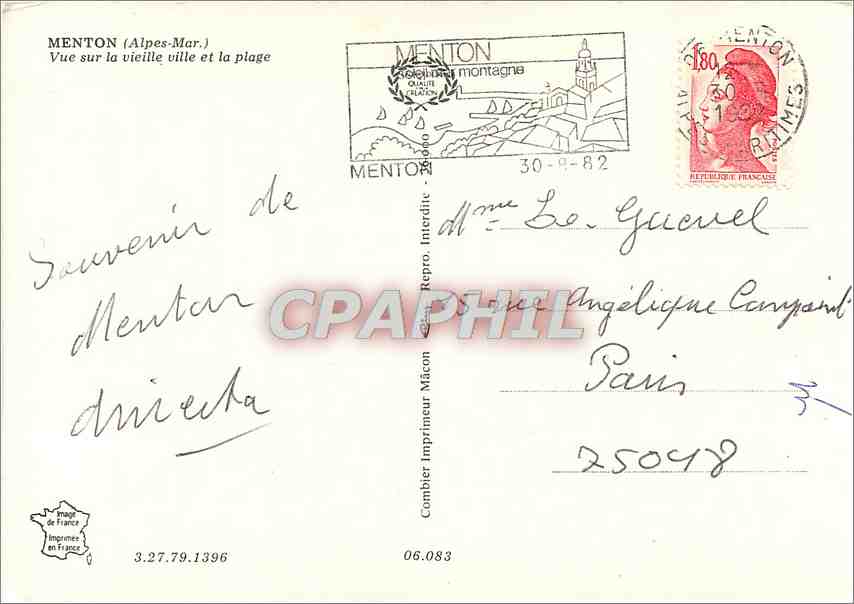 MENTON (Alpes-Mar.)
Vue sur la vieille ville et la plage
MENTON
montagne
QUALITÉ
CRÉATION
MENTON
30-9-82
MENTON
12
30
MARITIMES
1,80
REPUBLIQUE FRANÇAISE
Souvenir de
Menton
Mme Le
35 rue Angélique
Paris
75048
CPAPHIL
Combier Imprimeur Mâcon
Repro. Interdite - 26.000
Image
de France
Imprimée
en France
3.27.79.1396
06.083